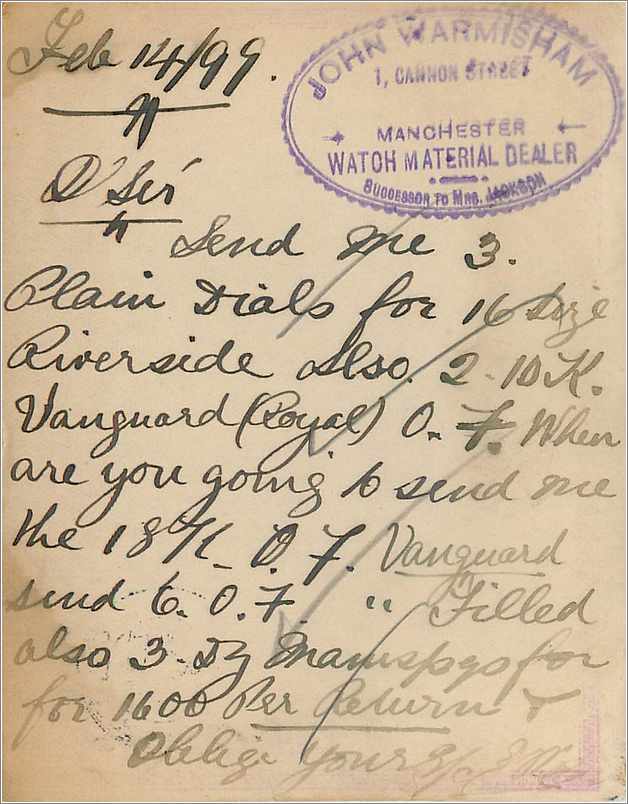 Feb 14/99.
JOHN WARMISHAM
1, CANNON STREET
MANCHESTER
WATCH MATERIAL DEALER
SUCCESSOR TO MRS. JACKSON
D' Sir
Send me 3.
Plain Dials for 16 size
Riverside also. 2-10 K.
Vanguard (Royal) O. F. When
are you going to send me
the 18 K. O. F. Vanguard
send 6. O. F. " Filled
also 3. Dz Mainspgs for
for 1600 Per Return &
Oblige yours